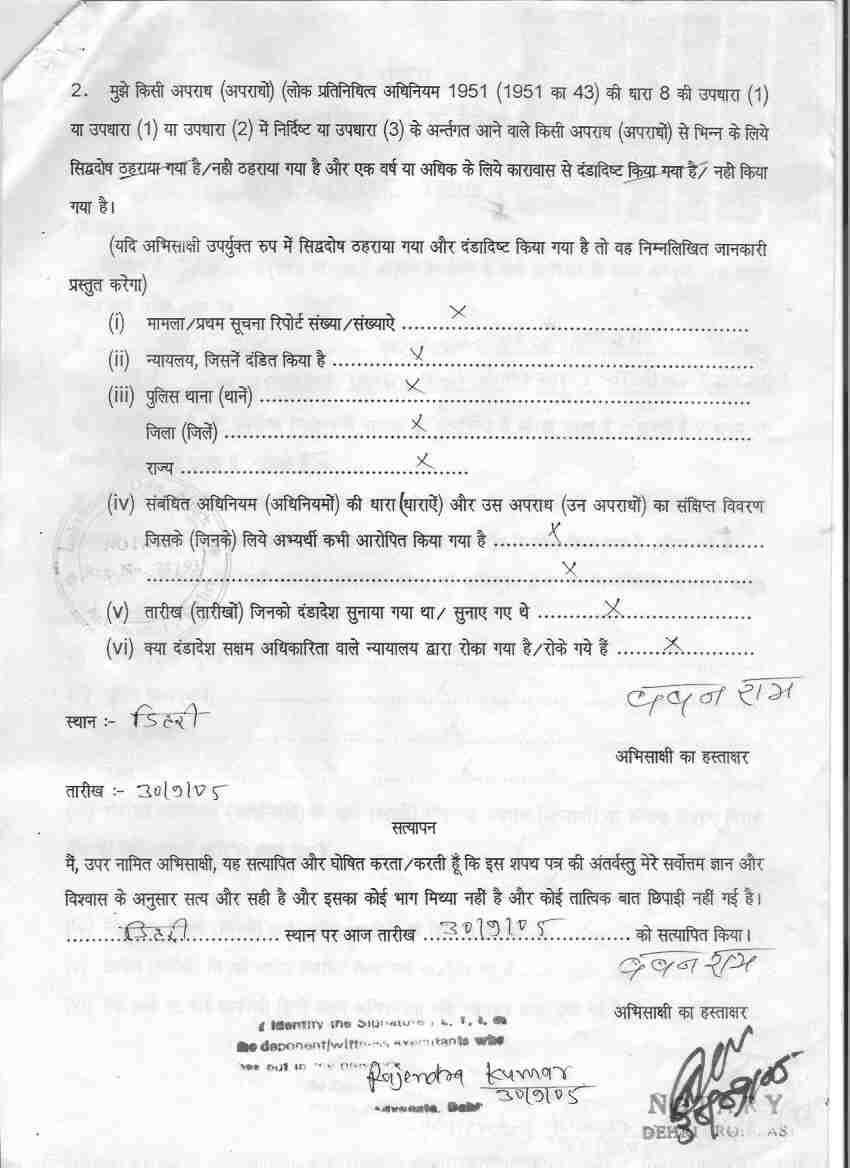 2. मुझे किसी अपराध (अपराधों) (लोक प्रतिनिधित्व अधिनियम 1951 (1951 का 43) की धारा 8 की उपधारा (1)
या उपधारा (1) या उपधारा (2) में निर्दिष्ट या उपधारा (3) के अर्न्तगत आने वाले किसी अपराध (अपराधों) से भिन्न के लिये
सिद्वदोष ठहराया गया है/नही ठहराया गया है और एक वर्ष या अधिक के लिये कारावास से दंडादिष्ट किया गया है/ नही किया
गया है।
(यदि अभिसाक्षी उपर्युक्त रुप में सिद्वदोष ठहराया गया और दंडादिष्ट किया गया है तो वह निम्नलिखित जानकारी
प्रस्तुत करेगा)
(i) मामला/प्रथम सूचना रिपोर्ट संख्या/संख्याऐ ........ X ........
(ii) न्यायलय, जिसनें दंडित किया है ........ X ........
(iii) पुलिस थाना (थानें) ........ X ........
जिला (जिलें) ........ X ........
राज्य ........ X ........
(iv) संबंधित अधिनियम (अधिनियमों) की धारा (धाराऐं) और उस अपराध (उन अपराधों) का संक्षिप्त विवरण
जिसके (जिनके) लिये अभ्यर्थी कभी आरोपित किया गया है ........ X ........
........ X ........
(v) तारीख (तारीखों) जिनको दंडादेश सुनाया गया था/ सुनाए गए थे ........ X ........
(vi) क्या दंडादेश सक्षम अधिकारिता वाले न्यायालय द्वारा रोका गया है/रोके गये हैं ........ X ........
बबन राम
स्थान :- डिहरी
अभिसाक्षी का हस्ताक्षर
तारीख :- 30/9/05
सत्यापन
मैं, उपर नामित अभिसाक्षी, यह सत्यापित और घोषित करता/करती हूँ कि इस शपथ पत्र की अंतर्वस्तु मेरे सर्वोत्तम ज्ञान और
विश्वास के अनुसार सत्य और सही है और इसका कोई भाग मिथ्या नहीं है और कोई तात्विक बात छिपाई नहीं गई है।
........ डिहरी ........ स्थान पर आज तारीख ........ 30/9/05 ........ को सत्यापित किया।
बबन राम
अभिसाक्षी का हस्ताक्षर
I Identify the Signature
the deponent/witness executants who
Rajendra Kumar
30/9/05
Advocate, Dehri
NOTARY
DEHRI ROHTAS